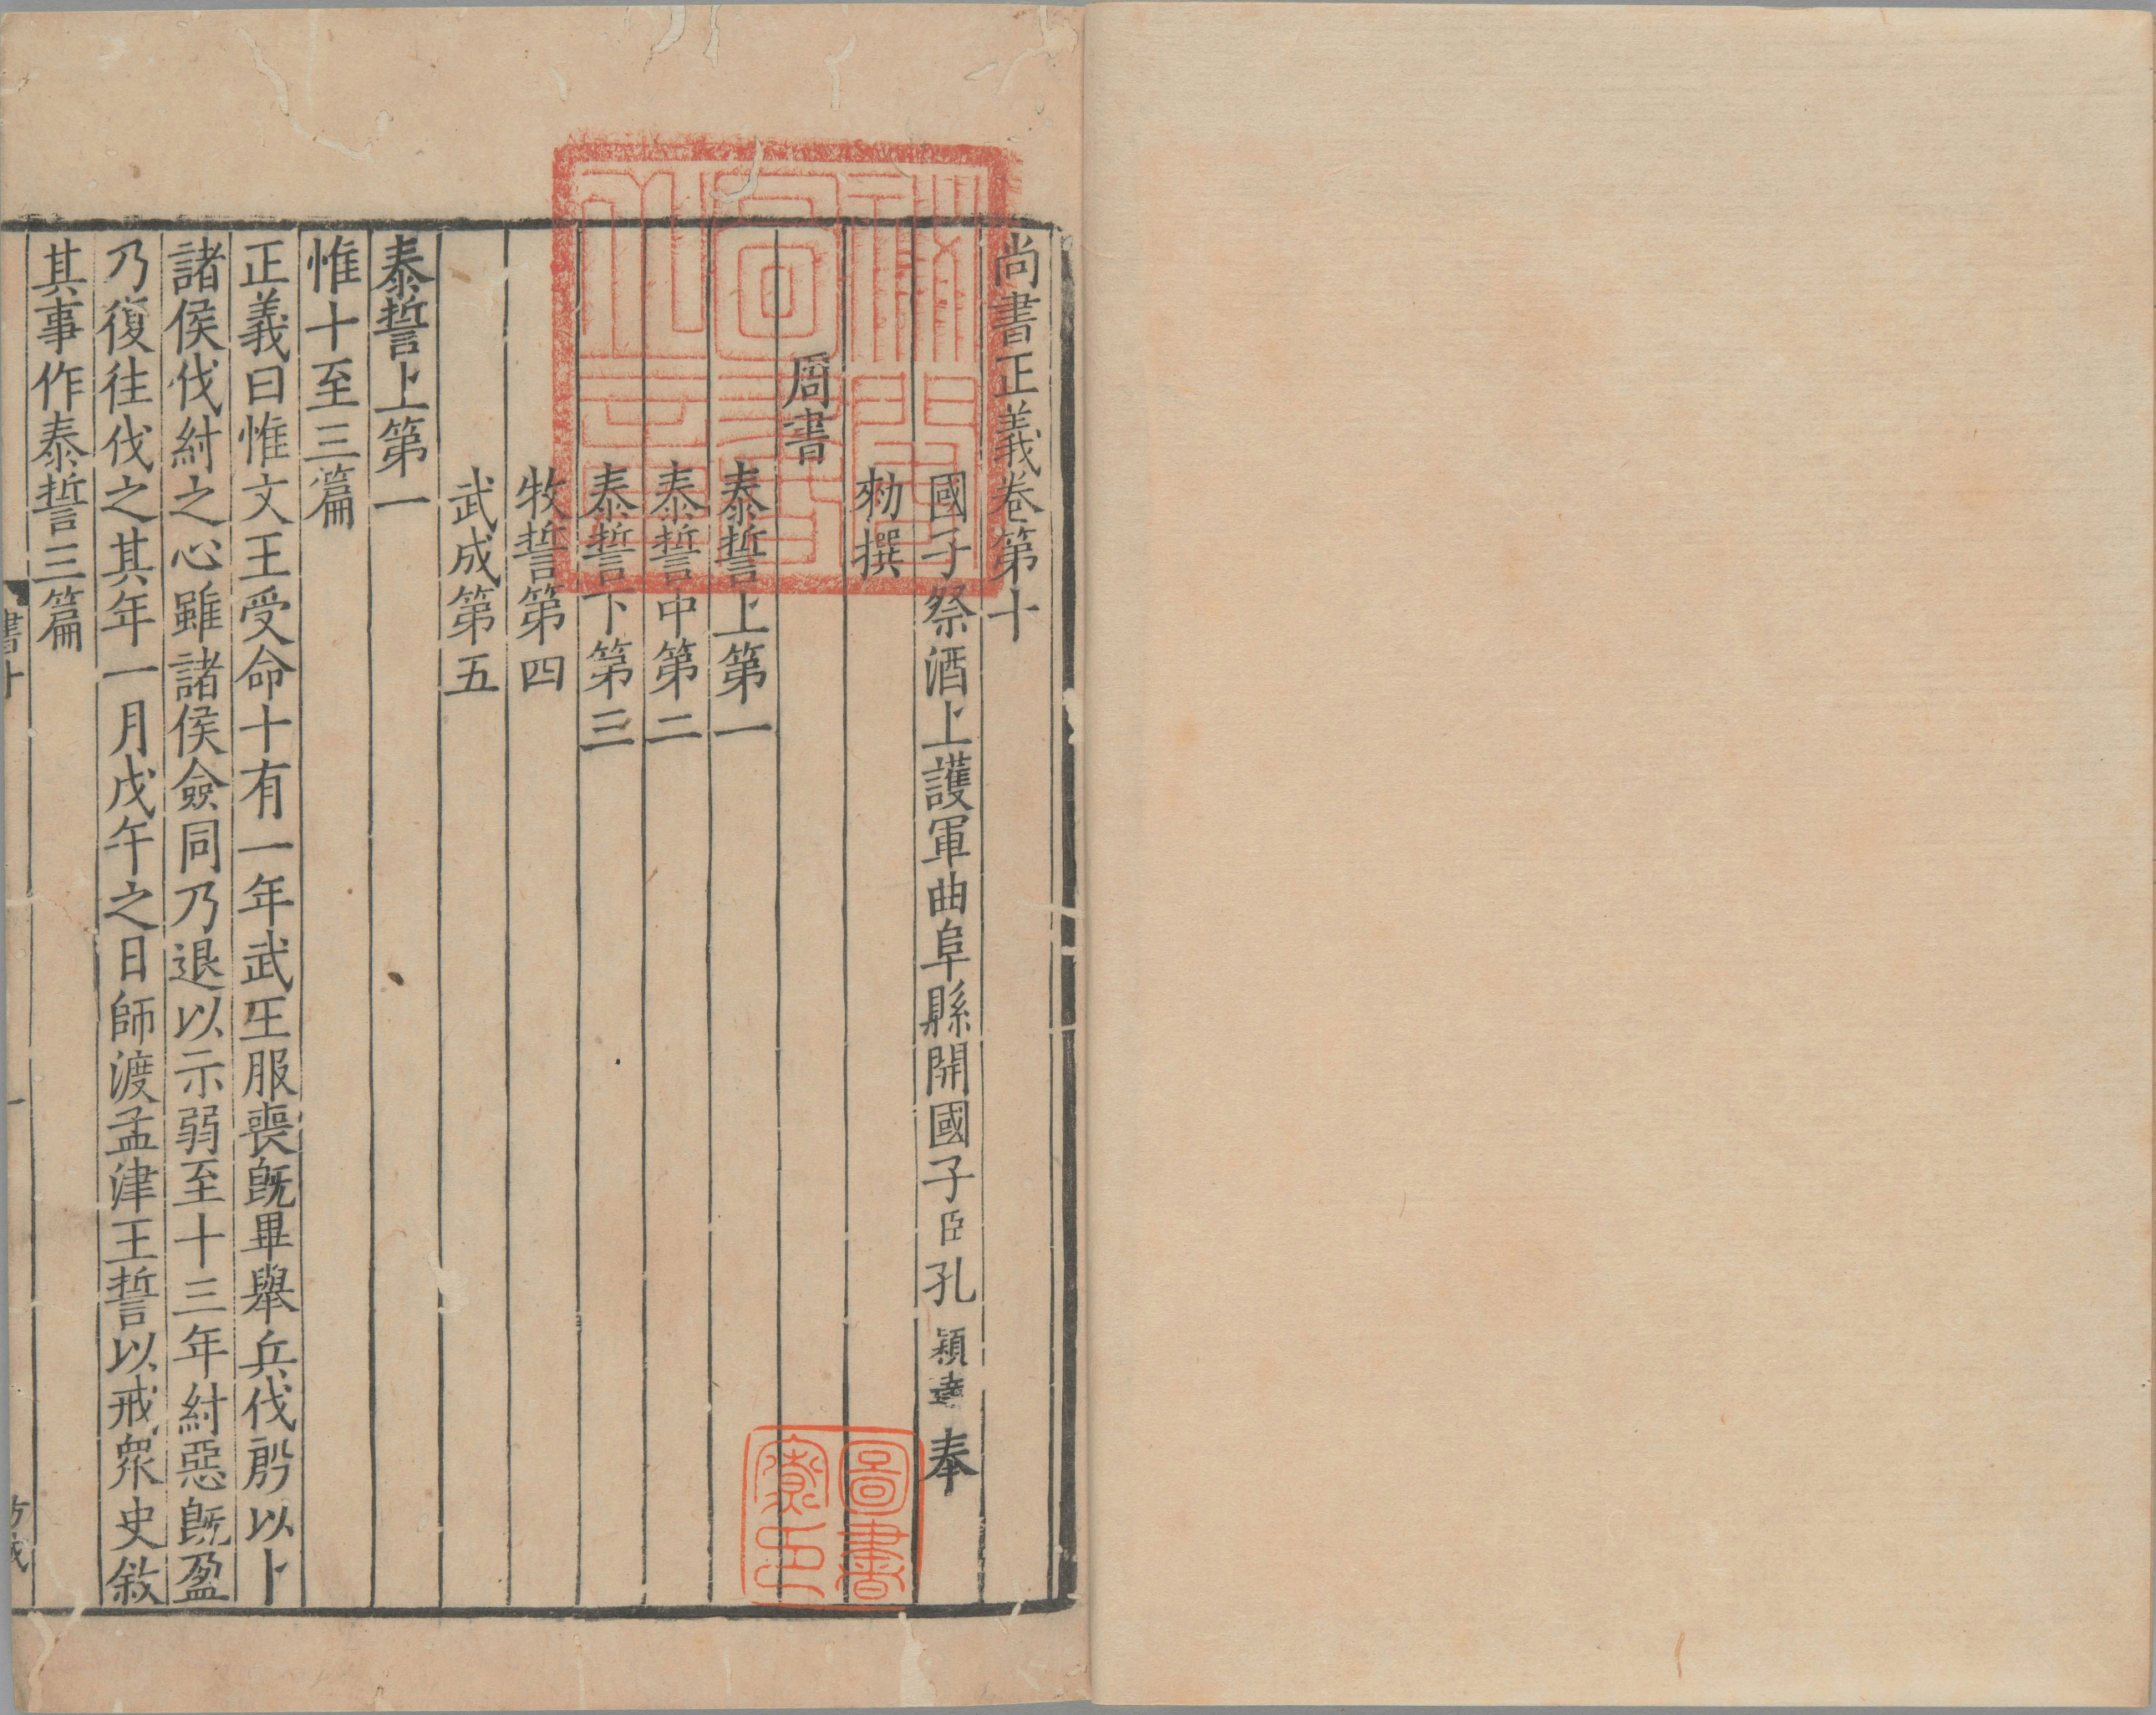 尚書正義卷第十
國子祭酒上護軍曲阜縣開國子臣孔穎達奉
勑撰
周書
泰誓上第一
泰誓中第二
泰誓下第三
牧誓第四
武成第五
泰誓上第一
惟十至三篇
正義曰惟文王受命十有一年武王服喪旣畢舉兵伐殷以卜
諸侯伐紂之心雖諸侯僉同乃退以示弱至十三年紂惡旣盈
乃復往伐之其年一月戊午之日師渡孟津王誓以戒衆史敘
其事作泰誓三篇
書十
一
圖書
寮印